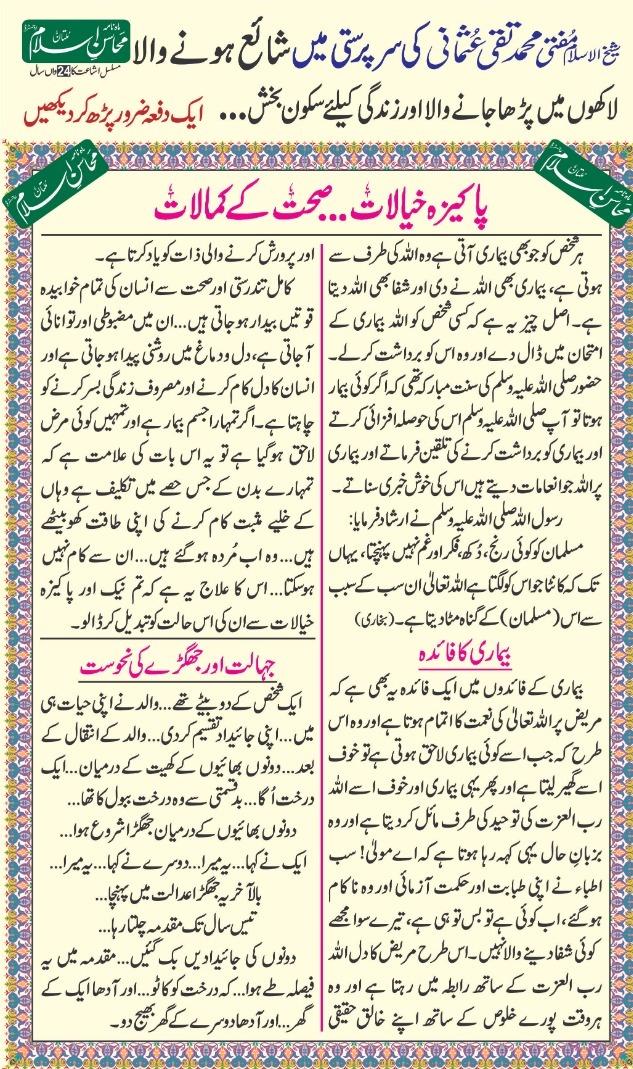 شیخ الاسلام مفتی محمد تقی عثمانی کی سرپرستی میں شائع ہونے والا
ماہنامہ محاسنِ اسلام ملتان
مسلسل اشاعت کا 24 واں سال
لاکھوں میں پڑھا جانے والا اور زندگی کیلئے سکون بخش... ایک دفعہ ضرور پڑھ کر دیکھیں
ماہنامہ محاسنِ اسلام ملتان
ماہنامہ محاسنِ اسلام ملتان
پاکیزہ خیالات... صحت کے کمالات
ہر شخص کو جو بھی بیماری آتی ہے وہ اللہ کی طرف سے
ہوتی ہے، بیماری بھی اللہ نے دی اور شفا بھی اللہ دیتا
ہے۔ اصل چیز یہ ہے کہ کسی شخص کو اللہ بیماری کے
امتحان میں ڈال دے اور وہ اس کو برداشت کر لے۔
حضور صلی اللہ علیہ وسلم کی سنت مبارکہ تھی کہ اگر کوئی بیمار
ہوتا تو آپ صلی اللہ علیہ وسلم اس کی حوصلہ افزائی کرتے
اور بیماری کو برداشت کرنے کی تلقین فرماتے اور بیماری
پر اللہ جو انعامات دیتے ہیں اس کی خوش خبری سناتے۔
رسول اللہ صلی اللہ علیہ وسلم نے ارشاد فرمایا:
مسلمان کو کوئی رنج، دُکھ، فکر اور غم نہیں پہنچتا، یہاں
تک کہ کانٹا جو اس کو لگتا ہے اللہ تعالیٰ ان سب کے سبب
سے اس (مسلمان) کے گناہ مٹا دیتا ہے۔ (بخاری)
بیماری کا فائدہ
بیماری کے فائدوں میں ایک فائدہ یہ بھی ہے کہ
مریض پر اللہ تعالیٰ کی نعمت کا اتمام ہوتا ہے اور وہ اس
طرح کہ جب اسے کوئی بیماری لاحق ہوتی ہے تو خوف
اسے گھیر لیتا ہے اور پھر یہی بیماری اور خوف اسے اللہ
رب العزت کی توحید کی طرف مائل کر دیتا ہے اور وہ
بزبانِ حال یہی کہہ رہا ہوتا ہے کہ اے مولیٰ! سب
اطباء نے اپنی طبابت اور حکمت آزمائی اور وہ ناکام
ہو گئے، اب کوئی ہے تو بس تو ہی ہے، تیرے سوا مجھے
کوئی شفا دینے والا نہیں۔ اس طرح مریض کا دل اللہ
رب العزت کے ساتھ رابطہ میں رہتا ہے اور وہ
ہر وقت پورے خلوص کے ساتھ اپنے خالق حقیقی
اور پرورش کرنے والی ذات کو یاد کرتا ہے۔
کامل تندرستی اور صحت سے انسان کی تمام خوابیدہ
قوتیں بیدار ہو جاتی ہیں... ان میں مضبوطی اور توانائی
آ جاتی ہے، دل و دماغ میں روشنی پیدا ہو جاتی ہے اور
انسان کا دل کام کرنے اور مصروف زندگی بسر کرنے کو
چاہتا ہے۔ اگر تمہارا جسم بیمار ہے اور تمہیں کوئی مرض
لاحق ہو گیا ہے تو یہ اس بات کی علامت ہے کہ
تمہارے بدن کے جس حصے میں تکلیف ہے وہاں
کے خلیے مثبت کام کرنے کی اپنی طاقت کھو بیٹھے
ہیں... وہ اب مُردہ ہو گئے ہیں... ان سے کام نہیں
ہو سکتا... اس کا علاج یہ ہے کہ تم نیک اور پاکیزہ
خیالات سے ان کی اس حالت کو تبدیل کر ڈالو۔
جہالت اور جھگڑے کی نحوست
ایک شخص کے دو بیٹے تھے... والد نے اپنی حیات ہی
میں... اپنی جائیداد تقسیم کر دی... والد کے انتقال کے
بعد... دونوں بھائیوں کے کھیت کے درمیان... ایک
درخت اُگا... بدقسمتی سے وہ درخت ببول کا تھا...
دونوں بھائیوں کے درمیان جھگڑا شروع ہوا...
ایک نے کہا... یہ میرا... دوسرے نے کہا... یہ میرا...
بالآخر یہ جھگڑا عدالت میں پہنچا...
تیس سال تک مقدمہ چلتا رہا...
دونوں کی جائیدادیں بک گئیں... مقدمہ میں یہ
فیصلہ طے ہوا... کہ درخت کو کاٹو... اور آدھا ایک کے
گھر... اور آدھا دوسرے کے گھر بھیج دو۔